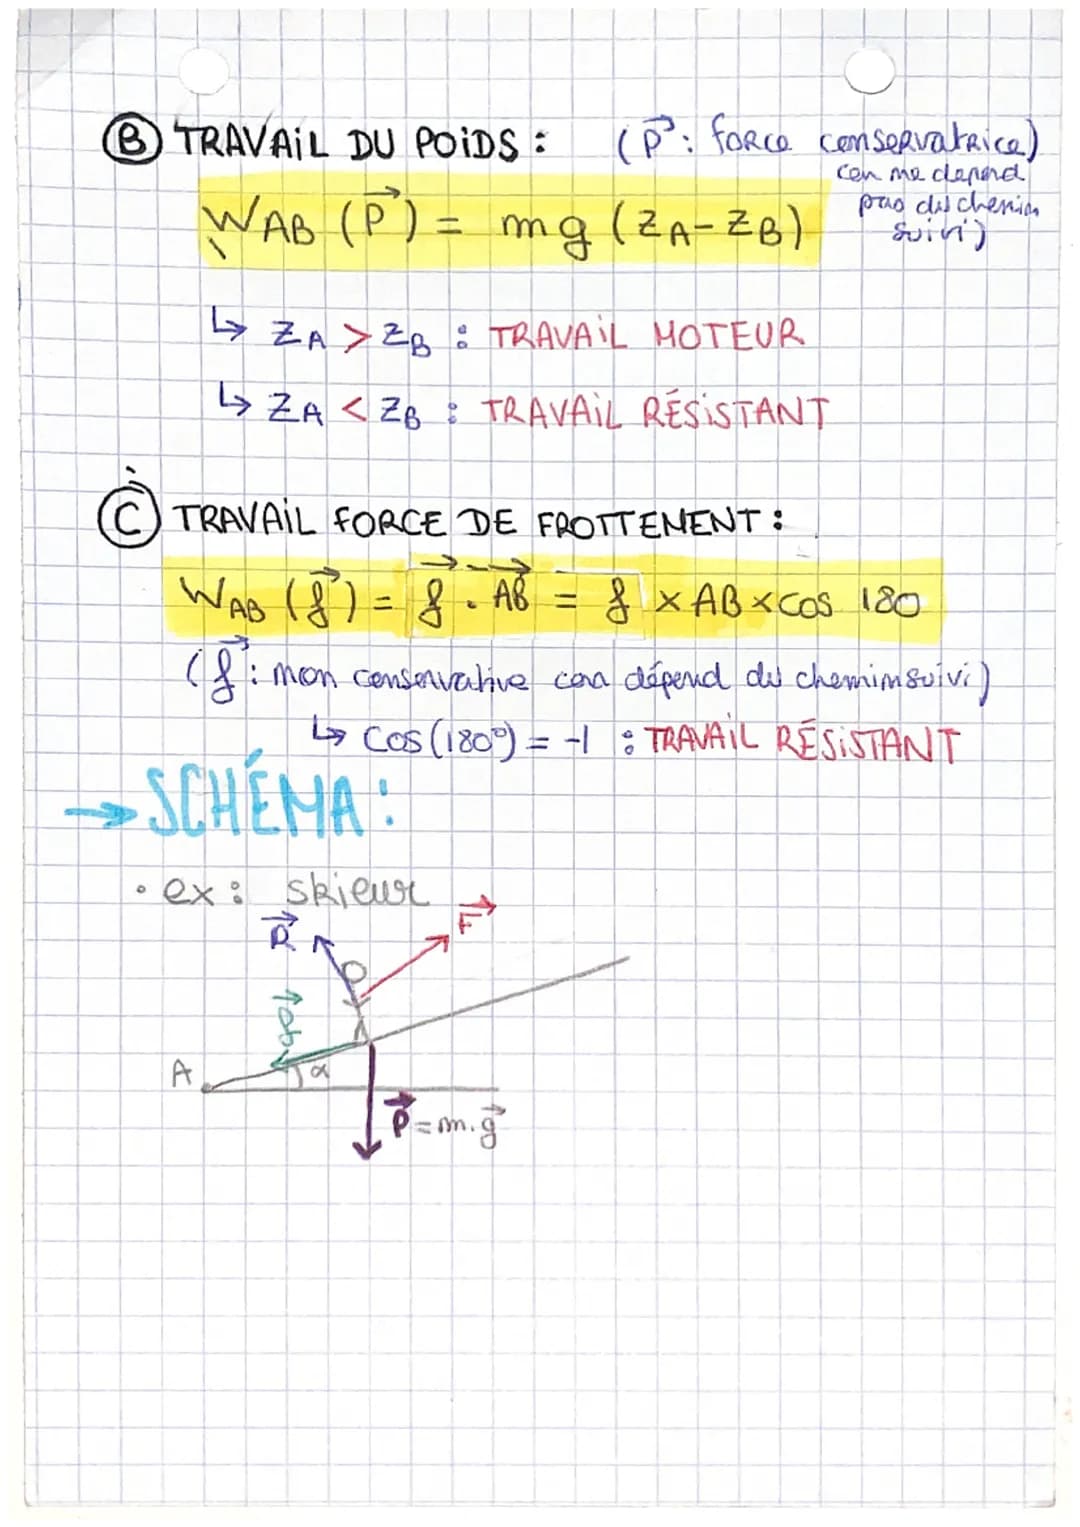 B TRAVAIL DU POIDS : (P⃗ : force conservatrice)
car ne dépend
pas du chemin
suivi)
W_AB (P⃗) = mg (z_A - z_B)
↳ z_A > z_B : TRAVAIL MOTEUR
↳ z_A < z_B : TRAVAIL RÉSISTANT
C TRAVAIL FORCE DE FROTTEMENT :
W_AB (f⃗) = f⃗ . AB⃗ = f × AB × cos 180
(f⃗ : non conservative car dépend du chemin suivi)
↳ cos(180°) = -1 : TRAVAIL RÉSISTANT
→ SCHÉMA :
• ex : skieur
R⃗
F⃗
f⃗
A
α
P⃗ = m.g⃗